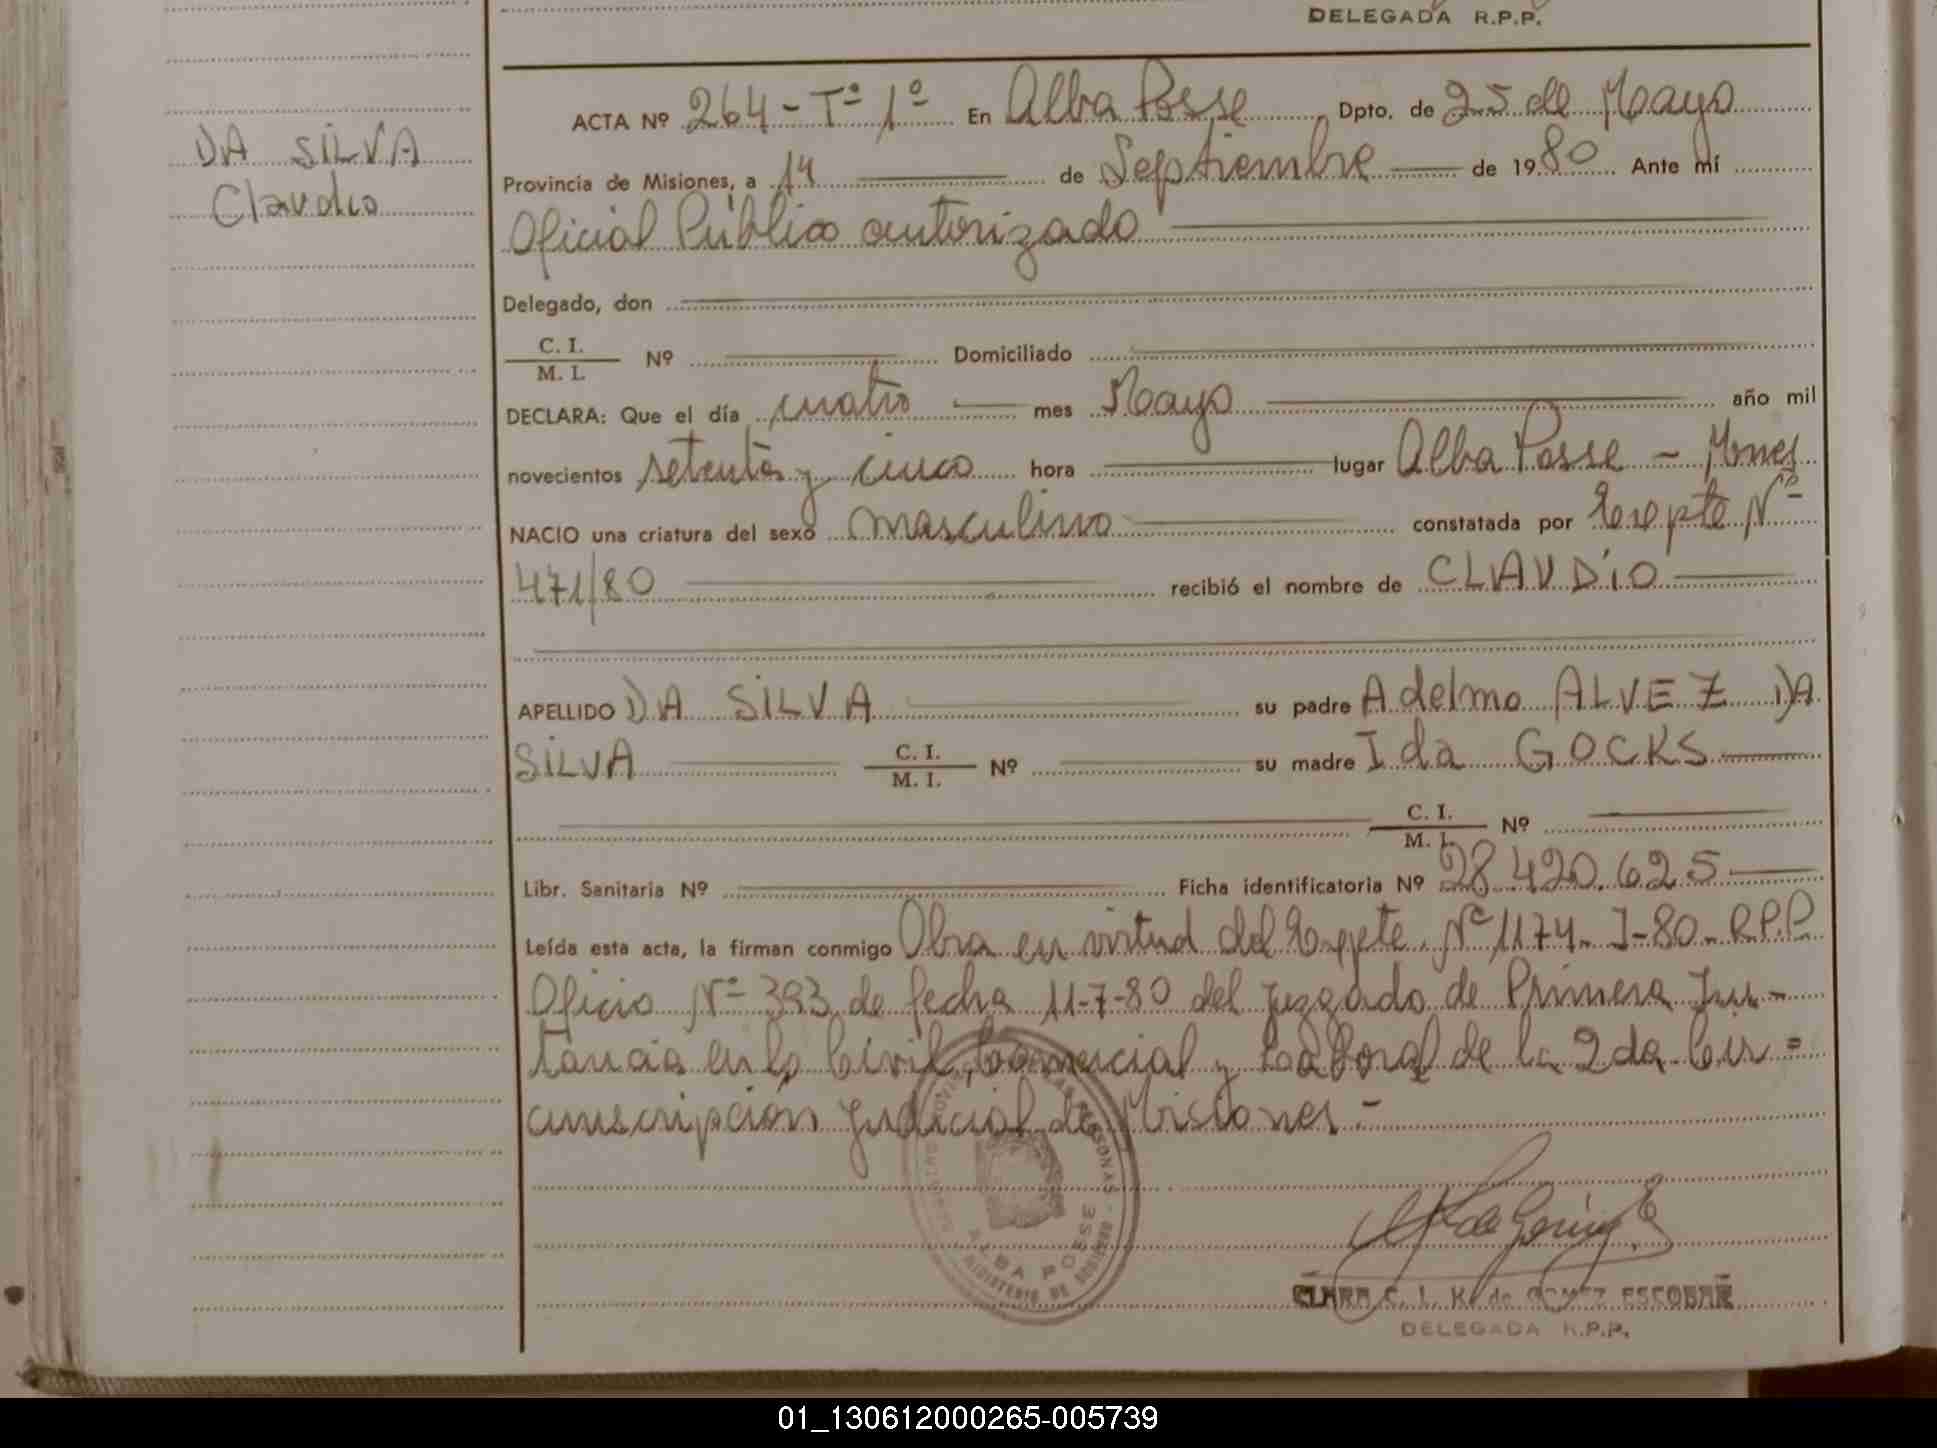 DELEGADA R.P.P.
DA SILVA
Claudio
ACTA Nº 264 - Tº 1º En Alba Posse Dpto. de 25 de Mayo
Provincia de Misiones, a 14 de Septiembre de 1980 Ante mí
Oficial Público autorizado
Delegado, don
C. I.
M. I. Nº Domiciliado
DECLARA: Que el día cuatro mes Mayo año mil
novecientos setenta y cinco hora lugar Alba Posse - Mnes
NACIO una criatura del sexo masculino constatada por Expte Nº
471/80 recibió el nombre de CLAUDIO
APELLIDO DA SILVA su padre Adelmo ALVEZ DA
SILVA C. I. M. I. Nº su madre Ida GOCKS
C. I.
M. I. Nº
Libr. Sanitaria Nº Ficha identificatoria Nº 28.420.625
Leída esta acta, la firman conmigo Obra en virtud del Expte. Nº 1174-J-80-R.P.P
Oficio Nº 393 de fecha 11-7-80 del juzgado de Primera Ins-
tancia en lo Civil, Comercial y Laboral de la 2da Cir=
cunscripción judicial de Misiones.-
PERSONAS
ALBA POSSE
MINISTERIO DE GOBIERNO
CLARA C. L. K. de GOMEZ ESCOBAR
DELEGADA R.P.P.
01_130612000265-005739